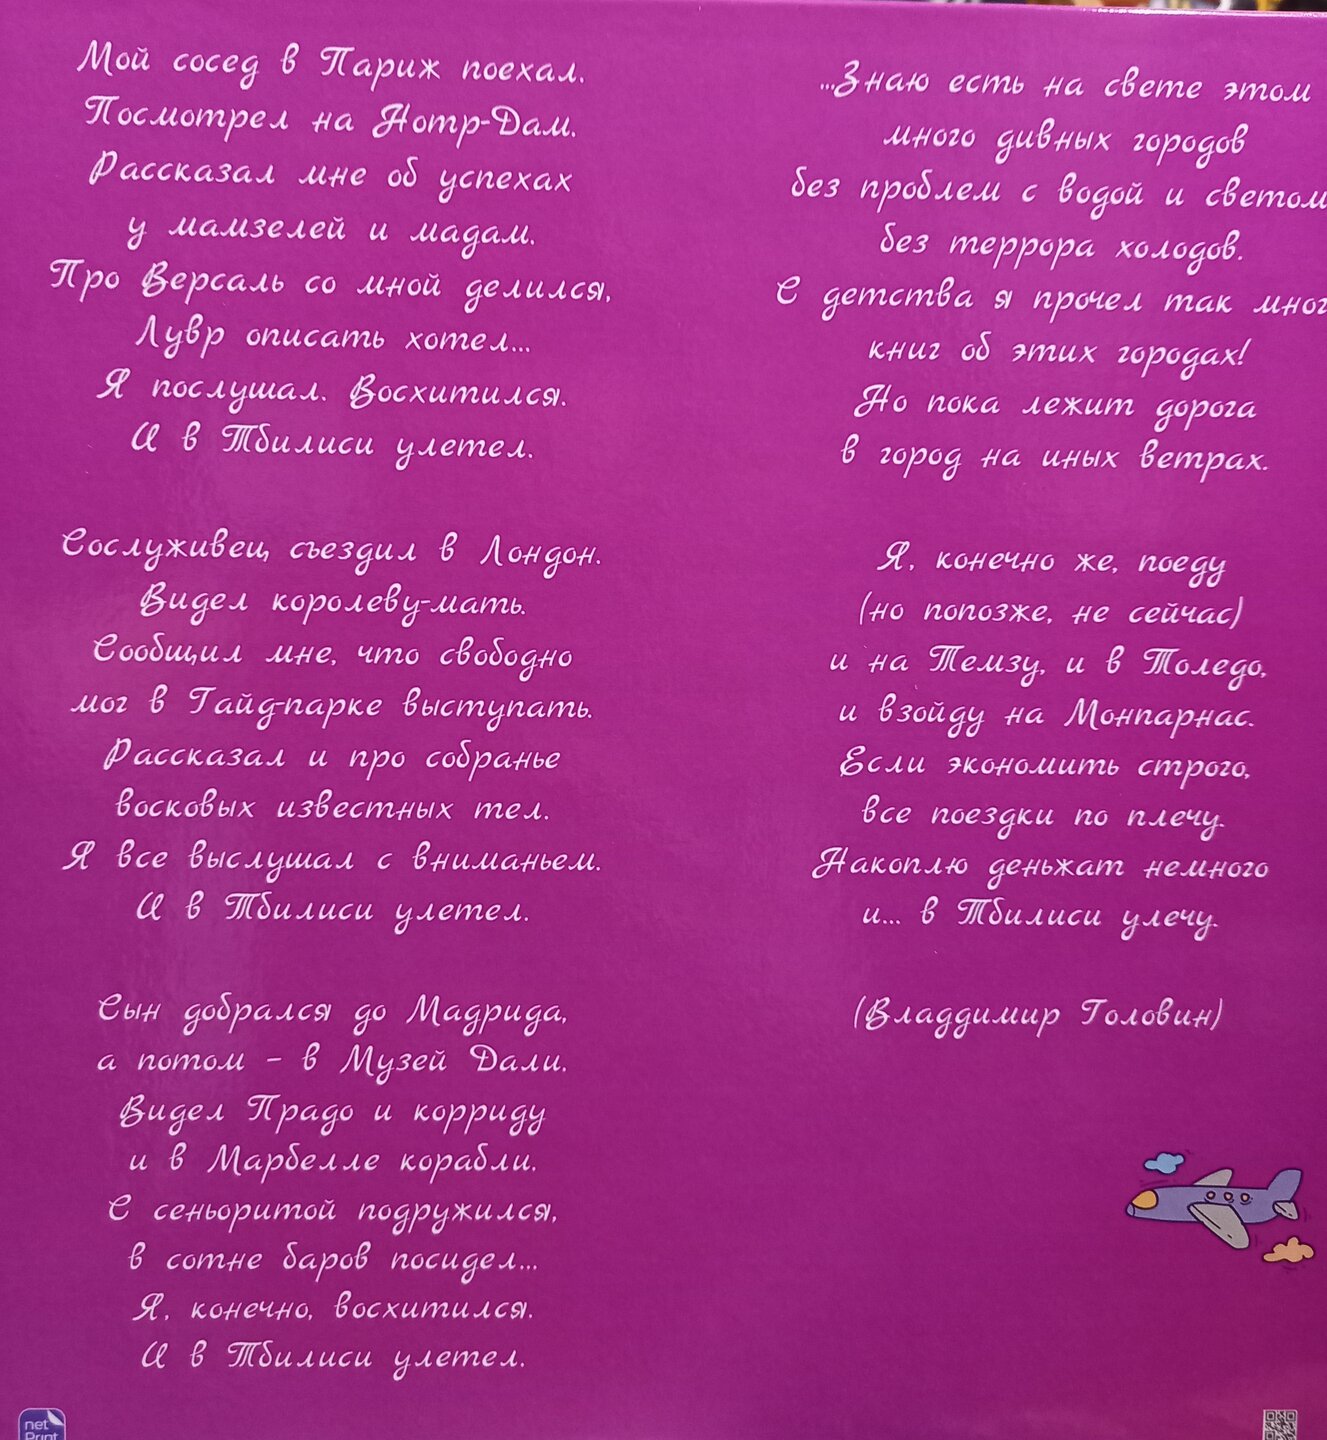 Мой сосед в Париж поехал.
Посмотрел на Нотр-Дам.
Рассказал мне об успехах
у мамзелей и мадам.
Про Версаль со мной делился,
Лувр описать хотел...
Я послушал. Восхитился.
И в Тбилиси улетел.
Сослуживец съездил в Лондон.
Видел королеву-мать.
Сообщил мне, что свободно
мог в Гайд-парке выступать.
Рассказал и про собранье
восковых известных тел.
Я все выслушал с вниманьем.
И в Тбилиси улетел.
Сын добрался до Мадрида,
а потом – в Музей Дали.
Видел Прадо и корриду
и в Марбелле корабли.
С сеньоритой подружился,
в сотне баров посидел...
Я, конечно, восхитился.
И в Тбилиси улетел.
...Знаю есть на свете этом
много дивных городов
без проблем с водой и светом
без террора холодов.
С детства я прочел так мног
книг об этих городах!
Но пока лежит дорога
в город на иных ветрах.
Я, конечно же, поеду
(но попозже, не сейчас)
и на Темзу, и в Толедо,
и взойду на Монпарнас.
Если экономить строго,
все поездки по плечу.
Накоплю деньжат немного
и... в Тбилиси улечу.
(Владдимир Головин)
net
Print